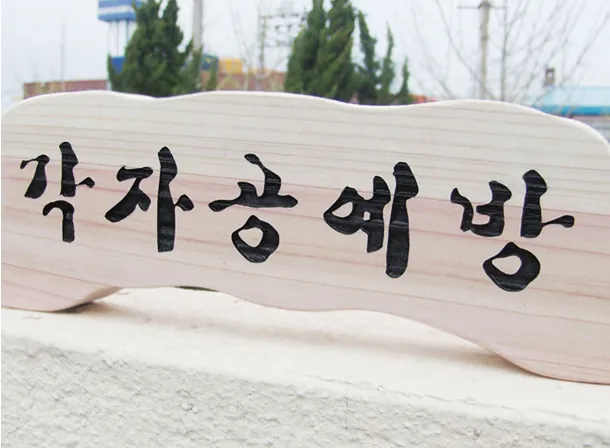 각자공예방